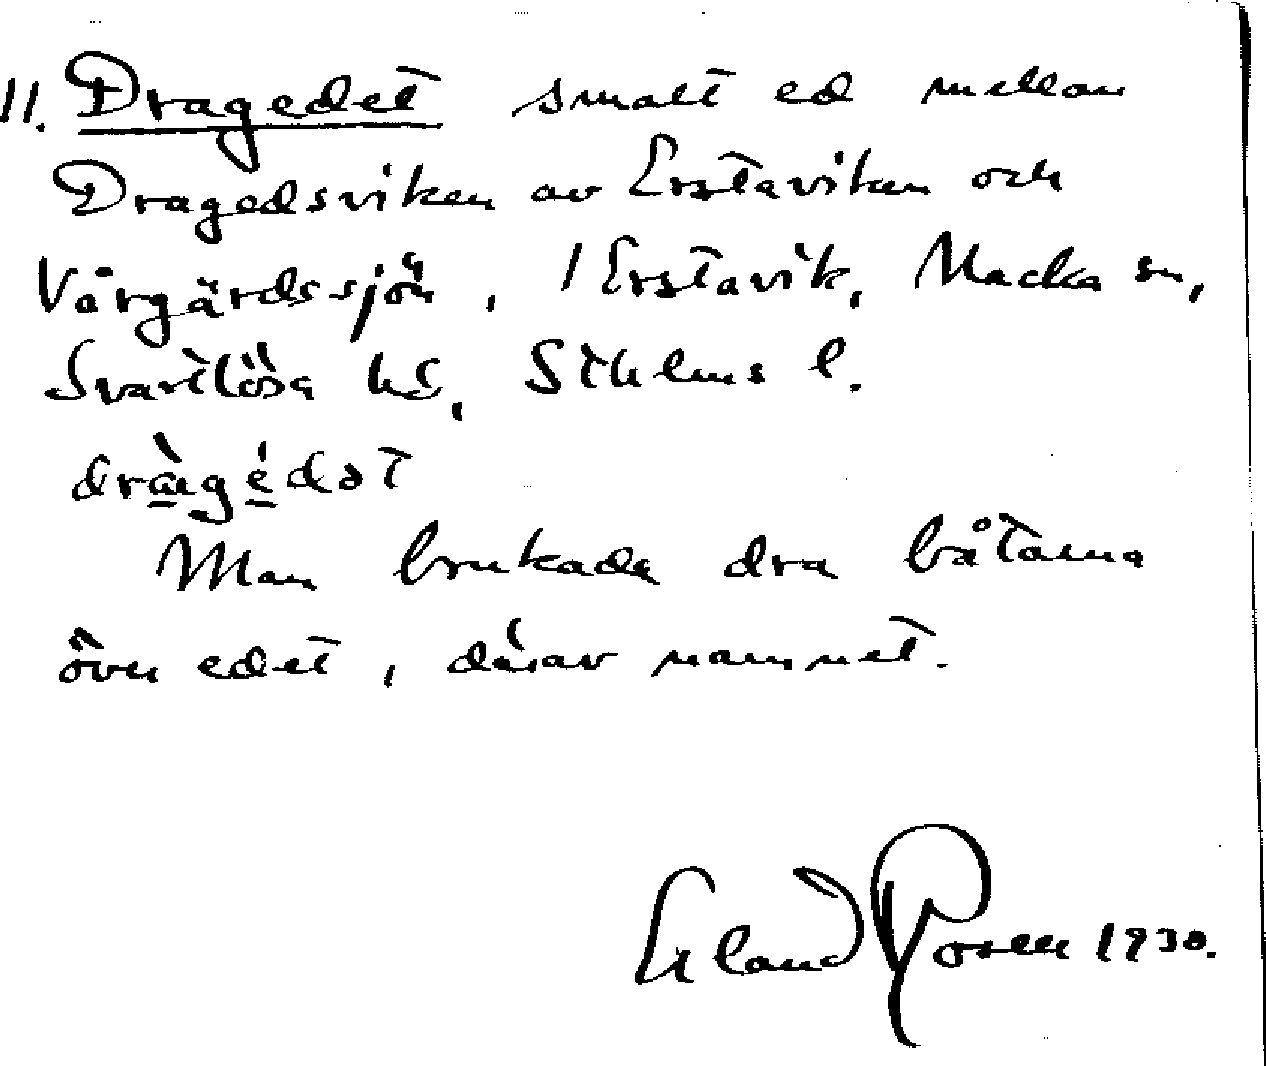 11. Dragedet smalt ed mellan
Dragedsviken av Erstaviken och
Vårgärdssjön, 1 Erstavik, Nacka sn,
Svartlösa hd, Sthlms l.
dràgédət
Man brukade dra båtarna
över edet, därav namnet.
Erland Rosell 1930.